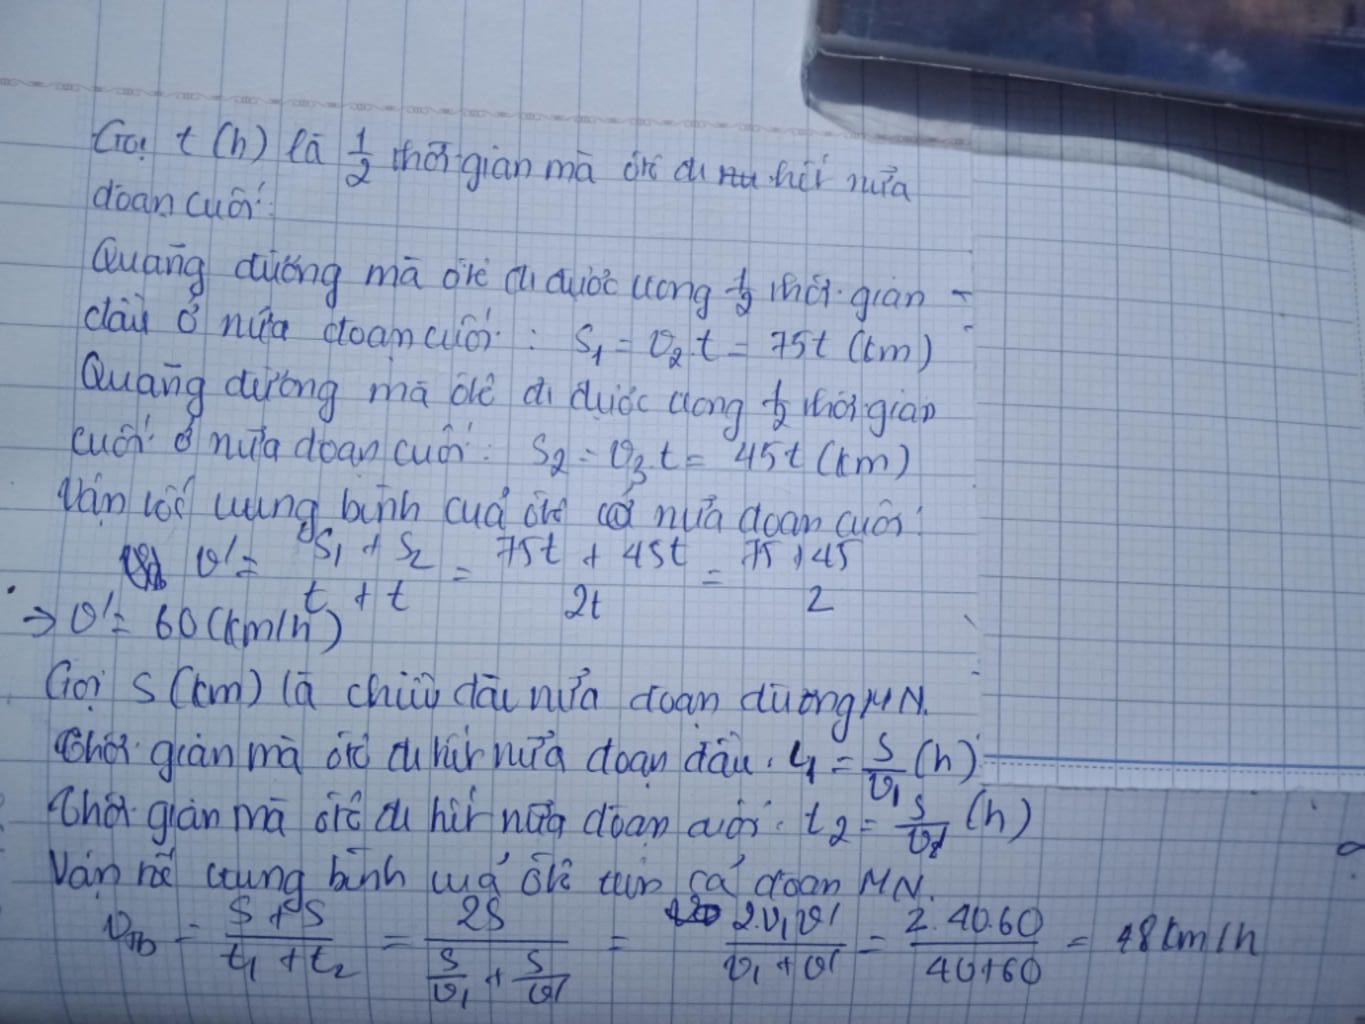 Gọi t (h) là 1/2 thời gian mà ôtô đi hết nửa
đoạn cuối:
Quãng đường mà ôtô đi được trong 1/2 thời gian
đầu ở nửa đoạn cuối: S₁ = v₂.t = 75t (km)
Quãng đường mà ôtô đi được trong 1/2 thời gian
cuối ở nửa đoạn cuối: S₂ = v₃.t = 45t (km)
Vận tốc trung bình của ôtô nửa đoạn cuối:
v' = (S₁ + S₂)/(t + t) = (75t + 45t)/2t = (75 + 45)/2
→ v' = 60 (km/h)
Gọi S (km) là chiều dài nửa đoạn đường MN.
Thời gian mà ôtô đi hết nửa đoạn đầu: t₁ = S/v₁ (h)
Thời gian mà ôtô đi hết nửa đoạn cuối: t₂ = S/v' (h)
Vận tốc trung bình của ôtô trên cả đoạn MN.
v_TB = (S + S)/(t₁ + t₂) = 2S/(S/v₁ + S/v') = 2.v₁v'/(v₁ + v') = 2.40.60/(40+60) = 48 km/h